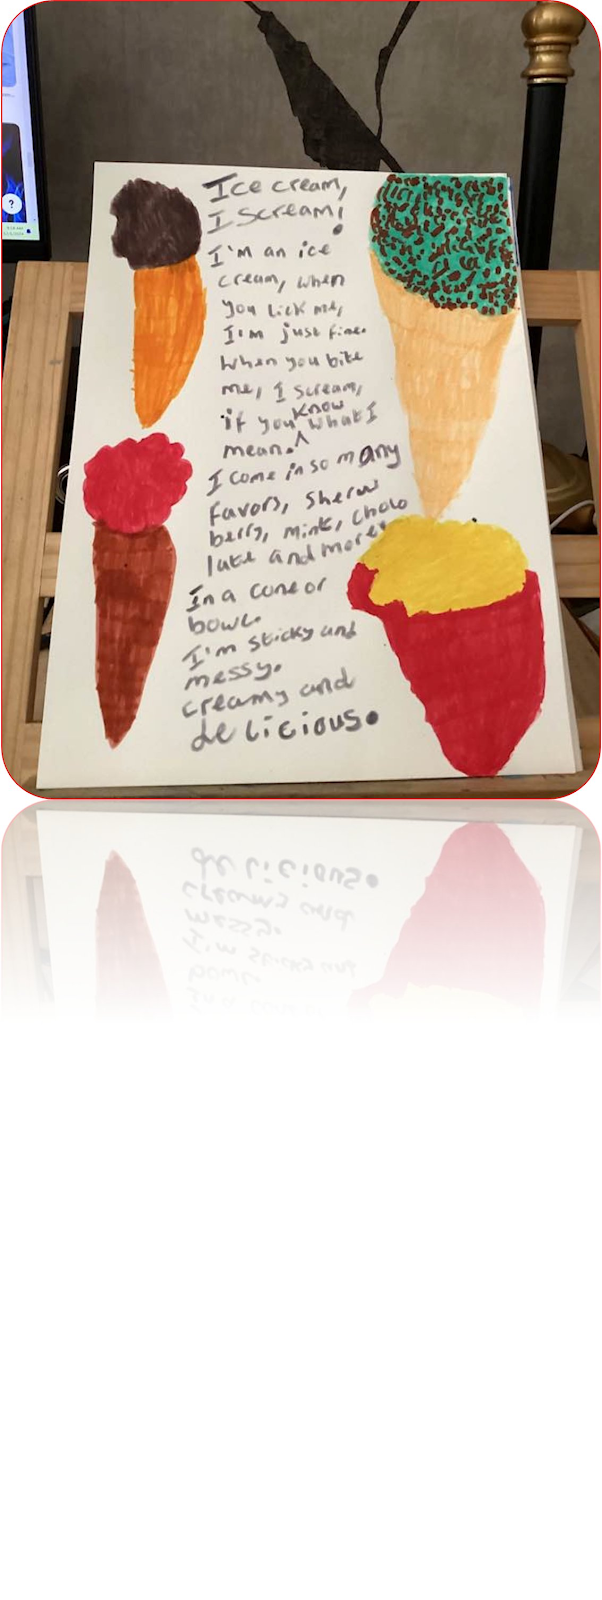 Ice cream,
I scream!
I'm an ice
cream, when
you lick me,
I'm just fine.
When you bite
me, I scream,
if you know what I
mean.
I come in so many
favors, Sherw
berry, mint, choco
late and more.
In a cone or
bowl.
I'm sticky and
messy.
creamy and
delicious.
?